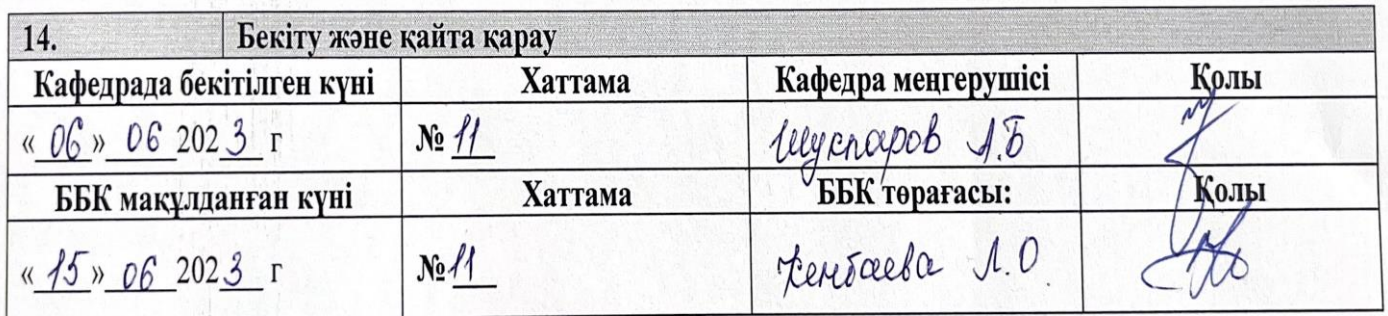 14. Бекіту және қайта қарау
Кафедрада бекітілген күні Хаттама Кафедра меңгерушісі Қолы
« 06 » 06 2023 г № 11 Шукпаров А.Б
ББК мақұлданған күні Хаттама ББК төрағасы: Қолы
« 15 » 06 2023 г № 11 Кенбаева Л.О